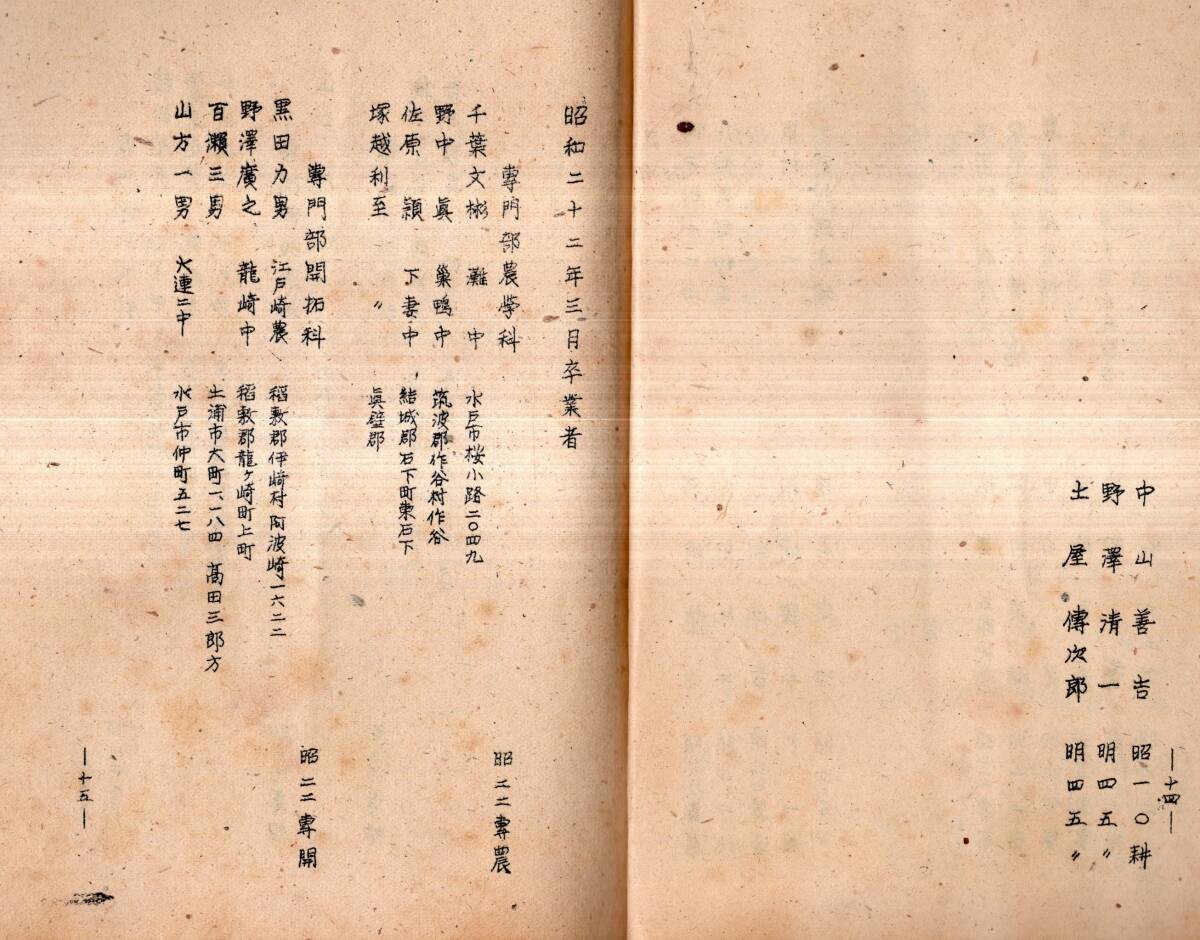 中山善吉 昭一〇耕
野澤清一 明四五〃
土屋傳次郎 明四五〃
―十四―
昭和二十二年三月卒業者
專門部農学科 昭二二專農
千葉文彬 灘中 水戸市桜小路二〇四九
野中眞 巣鴨中 筑波郡作谷村作谷
佐原頴 下妻中 結城郡石下町東石下
塚越利至 〃 眞壁郡
專門部開拓科 昭二二專開
黒田力男 江戸崎農 稲敷郡伊崎村阿波崎一六二二
野澤廣之 龍崎中 稲敷郡龍ヶ崎町上町
百瀬三男 土浦市大町一、一八四 髙田三郎方
山方一男 大連二中 水戸市仲町五二七
―十五―